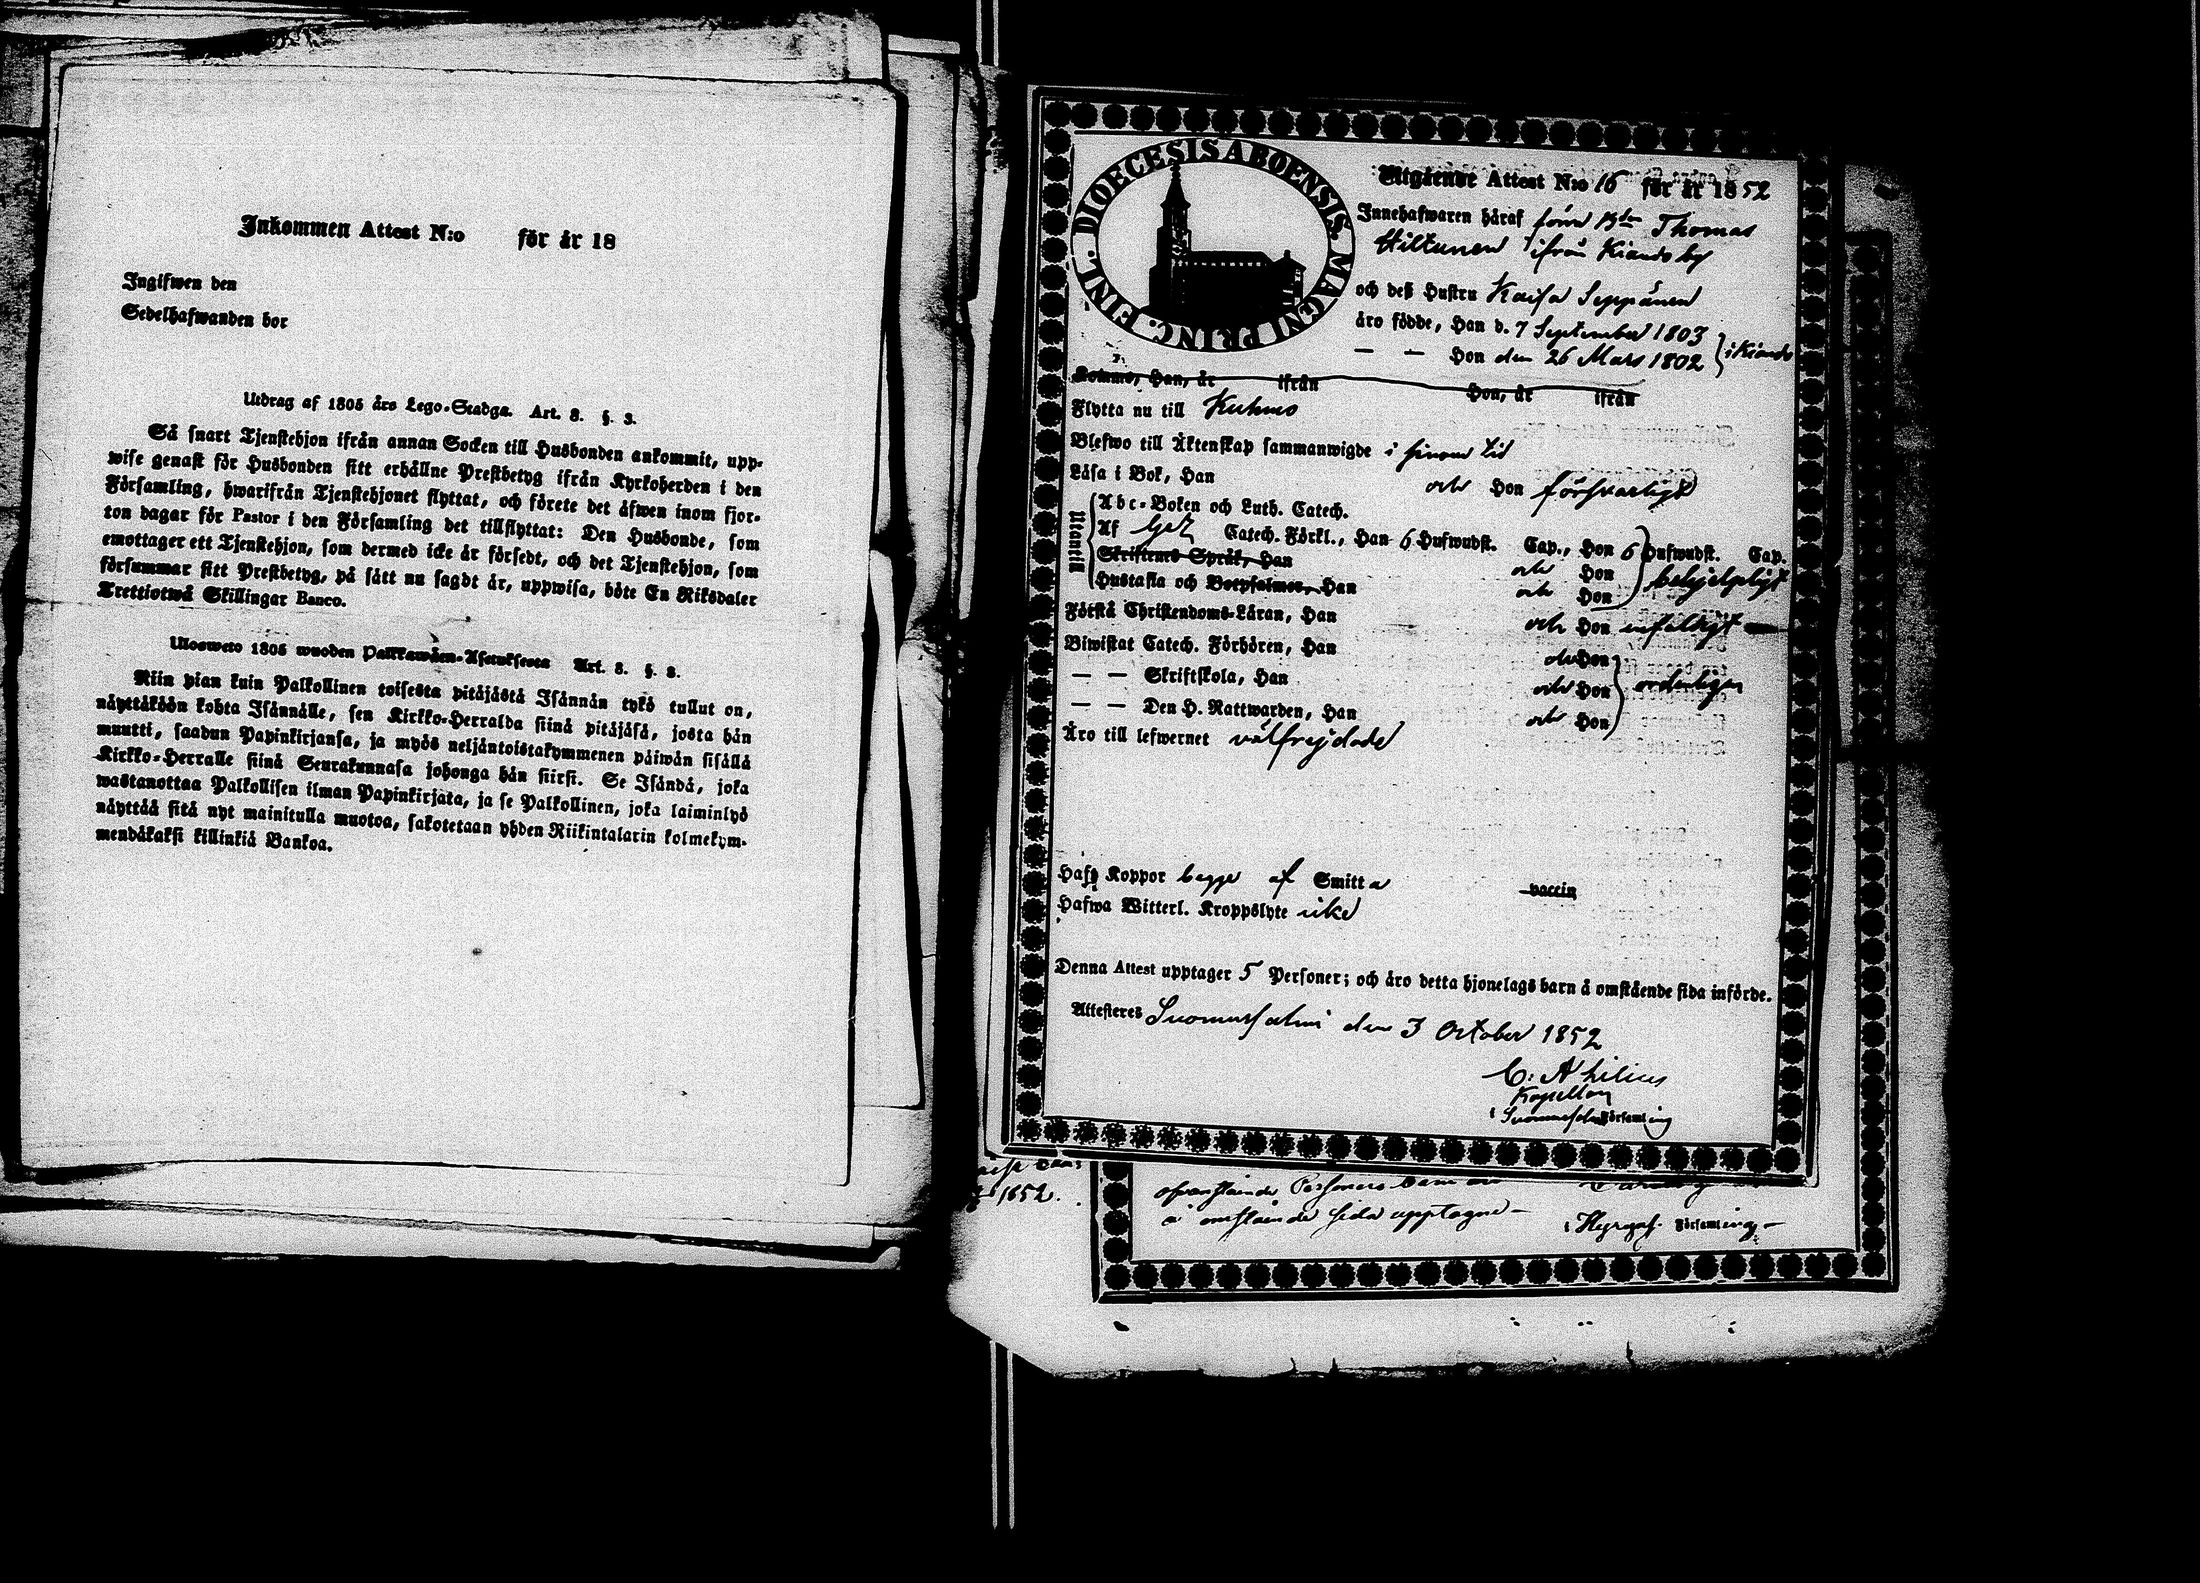 Inkommen Attest N:o för år 18
Ingifwen den
Sedelhafwanden bor
Utdrag af 1805 års Lego-Stadga. Art. 8. §. 3.
Så snart Tjenstehjon ifrån annan Socken till Husbonden ankommit, upp-
wise genast för Husbonden sitt erhållne Prestbetyg ifrån Kyrkoherden i den
Församling, hwarifrån Tjenstehjonet flyttat, och förete det äfwen inom fjor-
ton dagar för Pastor i den Församling det tillflyttat: Den Husbonde, som
emottager ett Tjenstehjon, som dermed icke är försedt, och det Tjenstehjon, som
försummar sitt Prestbetyg, på sätt nu sagdt är, uppwisa, böte En Riksdaler
Trettiotwå Skillingar Banco.
Ulosweto 1805 wuoden Palkkawäen-Asetuksesta Art. 8. §. 3.
Niin pian kuin Palkollinen toisesta pitäjästä Isännän tykö tullut on,
näyttäköön kohta Isännälle, sen Kirkko-Herralda siinä pitäjäsä, josta hän
muutti, saadun Papinkirjansa, ja myös neljäntoistakymmenen päiwän sisällä
Kirkko-Herralle siinä Seurakunnasa johonga hän siirsi. Se Isändä, joka
wastanottaa Palkollisen ilman Papinkirjata, ja se Palkollinen, joka laiminlyö
näyttää sitä nyt mainitulla muotoa, sakotetaan yhden Riikintalarin kolmekym-
mendäkaksi killinkiä Bankoa.
DIOECESIS ABOENSIS. MAGNI PRINC. FINL.
Utgående Attest N:o 16 för år 1852
Innehafwaren häraf förra Bden Thomas
Hiltunen ifrån Kianda by
och deß Hustru Kaisa Seppänen
äro födde, Han d. 7 September 1803
— — Hon den 26 Mars 1802 i Kianda
Komne, Han, år ifrån Hon, år ifrån
Flytta nu till Kuhmo
Blefwo till Äktenskap sammanwigde i sinom tid
Läsa i Bok, Han och Hon försvarligt
Utantill
Abc-Boken och Luth. Catech.
Af Catech. Förkl., Han 6 Hufwudst. Cap., Hon 6 Hufwudst. Cap.
Skriftenes Språk, Han och Hon behjelpligt
Hustafla och Botpsalmer, Han och Hon
Förstå Christendoms-Läran, Han och Hon enfaldigt
Biwistat Catech. Förhören, Han och Hon
— — Skriftskola, Han och Hon ordentligen
— — Den H. Nattwarden, Han och Hon
Äro till lefwernet välfrejdade
Haft Koppor begge af Smitta vaccin
Hafwa Witterl. Kroppslyte icke
Denna Attest upptager 5 Personer; och äro detta hjonelags barn å omstående sida införde.
Attesteres Suomussalmi den 3 October 1852
Kapellan
i Suomussalmi Församling
1852.
ofvanstående Personers barn äro
å omstående sida upptagne
i Församling